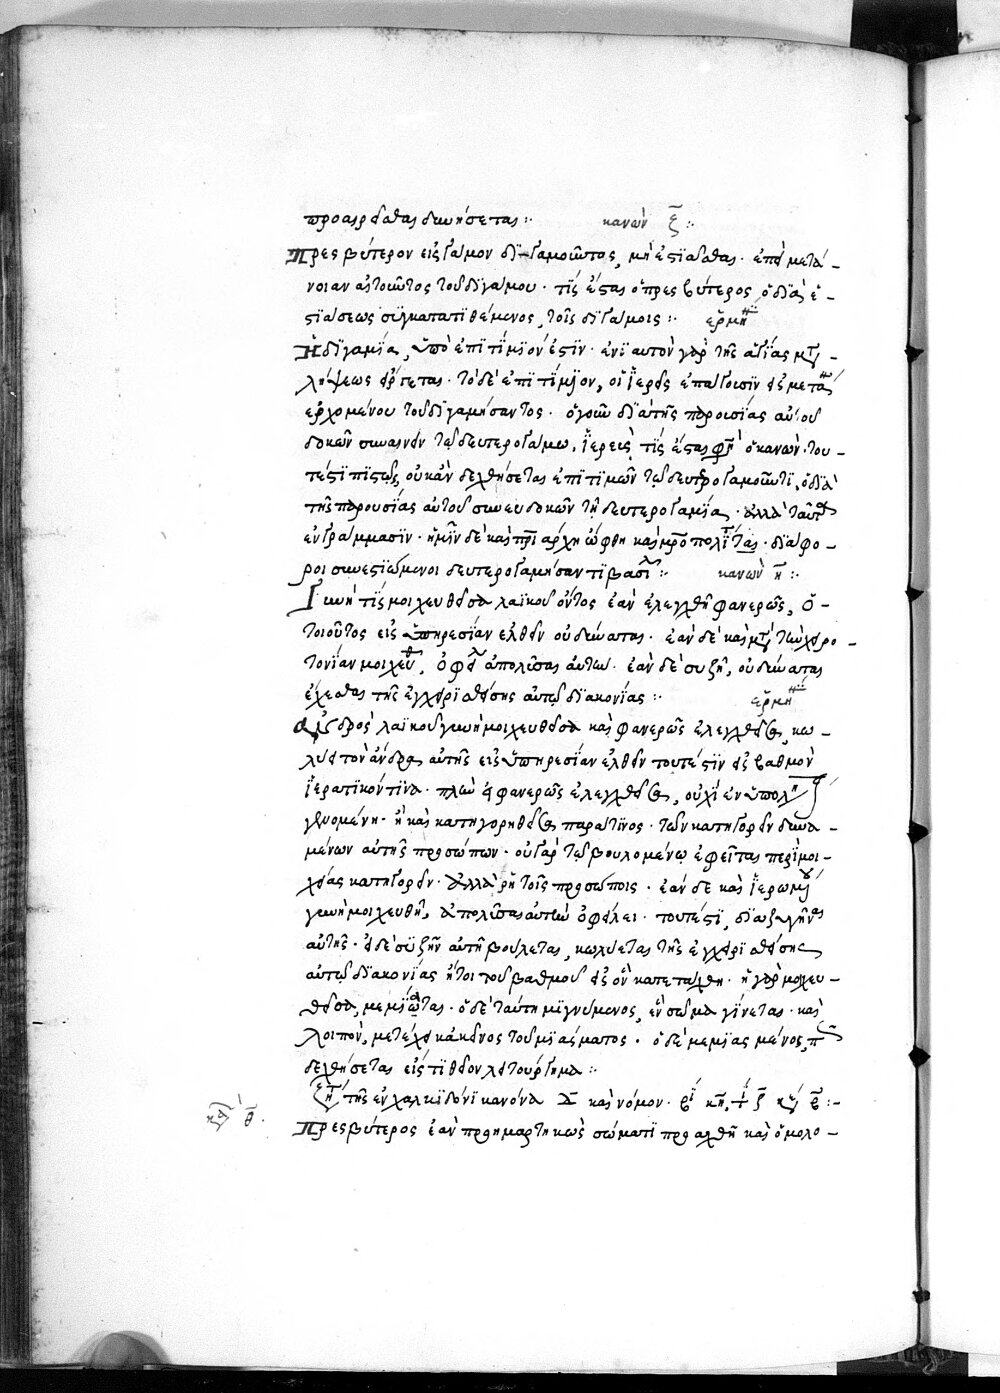 προαιρεῖσθαι δυνήσεται :· κανὼν ζ̄ :·
Πρεσβύτερον εἰς γάμον διγαμοῦντος, μὴ ἑστιᾶσθαι· ἐπεὶ μετά-
νοιαν αἰτοῦντος τοῦ διγάμου· τίς ἔσται ὁ πρεσβύτερος, ὁ διὰ ἑ-
στιάσεως συγκατατιθέμενος τοῖς διγάμοις :· ἑρμη
Ἡ διγαμία, ὑπὸ ἐπιτίμιόν ἐστιν· ἐνιαυτὸν γὰρ τῆς ἁγίας μετ
λήψεως εἴργεται· τὸ δὲ ἐπιτίμιον, οἱ ἱερεῖς ἐπάγουσιν εἰς μετὰ
ἐρχομένου τοῦ διγαμήσαντος· ὁ γοῦν διὰ τῆς παρουσίας αὐτοῦ
δοκῶν συναινεῖν τῷ δευτερογάμῳ, ἱερεὺς τίς ἔσται φη ὁ κανών· του-
τέστι πῶς, οὐκ ἂν δεχθήσεται ἐπιτιμῶν τῷ δευτερογαμοῦντι, ὁ διὰ
τῆς παρουσίας αὐτοῦ συνευδοκῶν τῇ δευτερογαμίᾳ· ἀλλὰ ταῦτα
ἐν γράμμασιν· ἡμῖν δὲ καὶ πρι άρχη ὤφθη καὶ μροπολίτας· διάφο-
ροι συνεστιώμενοι δευτερογαμήσαντι βασι :· κανὼν η̄ :·
Γυνή τις μοιχευθεῖσα λαϊκοῦ ὄντος ἐὰν ἐλεγχθῇ φανερῶς, ὁ
τοιοῦτος εἰς ὑπηρεσίαν ἐλθεῖν οὐ δύναται· ἐὰν δὲ καὶ μετ τὴν χειρο-
τονίαν μοιχευθ, ὀφει ἀπολῦσαι αὐτήν· ἐὰν δὲ συζῇ, οὐ δύναται
ἔχεσθαι τῆς ἐγχειρισθείσης αὐτῷ διακονίας :· ἑρμη
Ἀνδρὸς λαϊκοῦ γυνὴ μοιχευθεῖσα καὶ φανερῶς ἐλεγχθεῖσα, κω
λύει τὸν ἄνδρα αὐτῆς εἰς ὑπηρεσίαν ἐλθεῖν τουτέστιν εἰς βαθμὸν
ἱερατικόν τινα· πλὴν εἰ φανερῶς ἐλεγχθεῖσα, οὐχὶ ἐν ὑπολη
γενομένη· ἢ καὶ κατηγορηθεῖσα παρά τινος· τῶν κατηγορεῖν δυνα-
μένων αὐτῆς προσώπων· οὐ γὰρ τῷ βουλομένῳ ἐφεῖται περὶ μοι-
χείας κατηγορεῖν· ἀλλὰ ῥητοῖς προσώποις· ἐὰν δὲ καὶ ἱερωμ
γυνὴ μοιχευθῇ, ἀπολῦσαι αὐτὴν ὀφείλει· τουτέστι, διαζυγῆναι
αὐτῆς· εἰ δὲ συζῆν αὐτῇ βούλεται, κωλύεται τῆς ἐγχειρισθείσης
αὐτῷ διακονίας ἤτοι τοῦ βαθμοῦ εἰς ὃν κατετάχθη· ἡ γὰρ μοιχευ-
θεῖσα, μεμίανται· ὁ δὲ ταύτῃ μιγνύμενος, ἓν σῶμα γίνεται· καὶ
λοιπὸν, μετέχει κἀκεῖνος τοῦ μιάσματος· ὁ δὲ μεμιασμένος, π
δεχθήσεται εἰς τι θεῖον λειτούργημα :·
ζητ τῆς ἐν χαλκιδόνι κανόνα δ καὶ νόμον· βι κη, τι ζ κε β :·
κεφ θ̄ .
Πρεσβύτερος ἐὰν προημαρτηκὼς σώματι προαχθῇ καὶ ὁμολο-